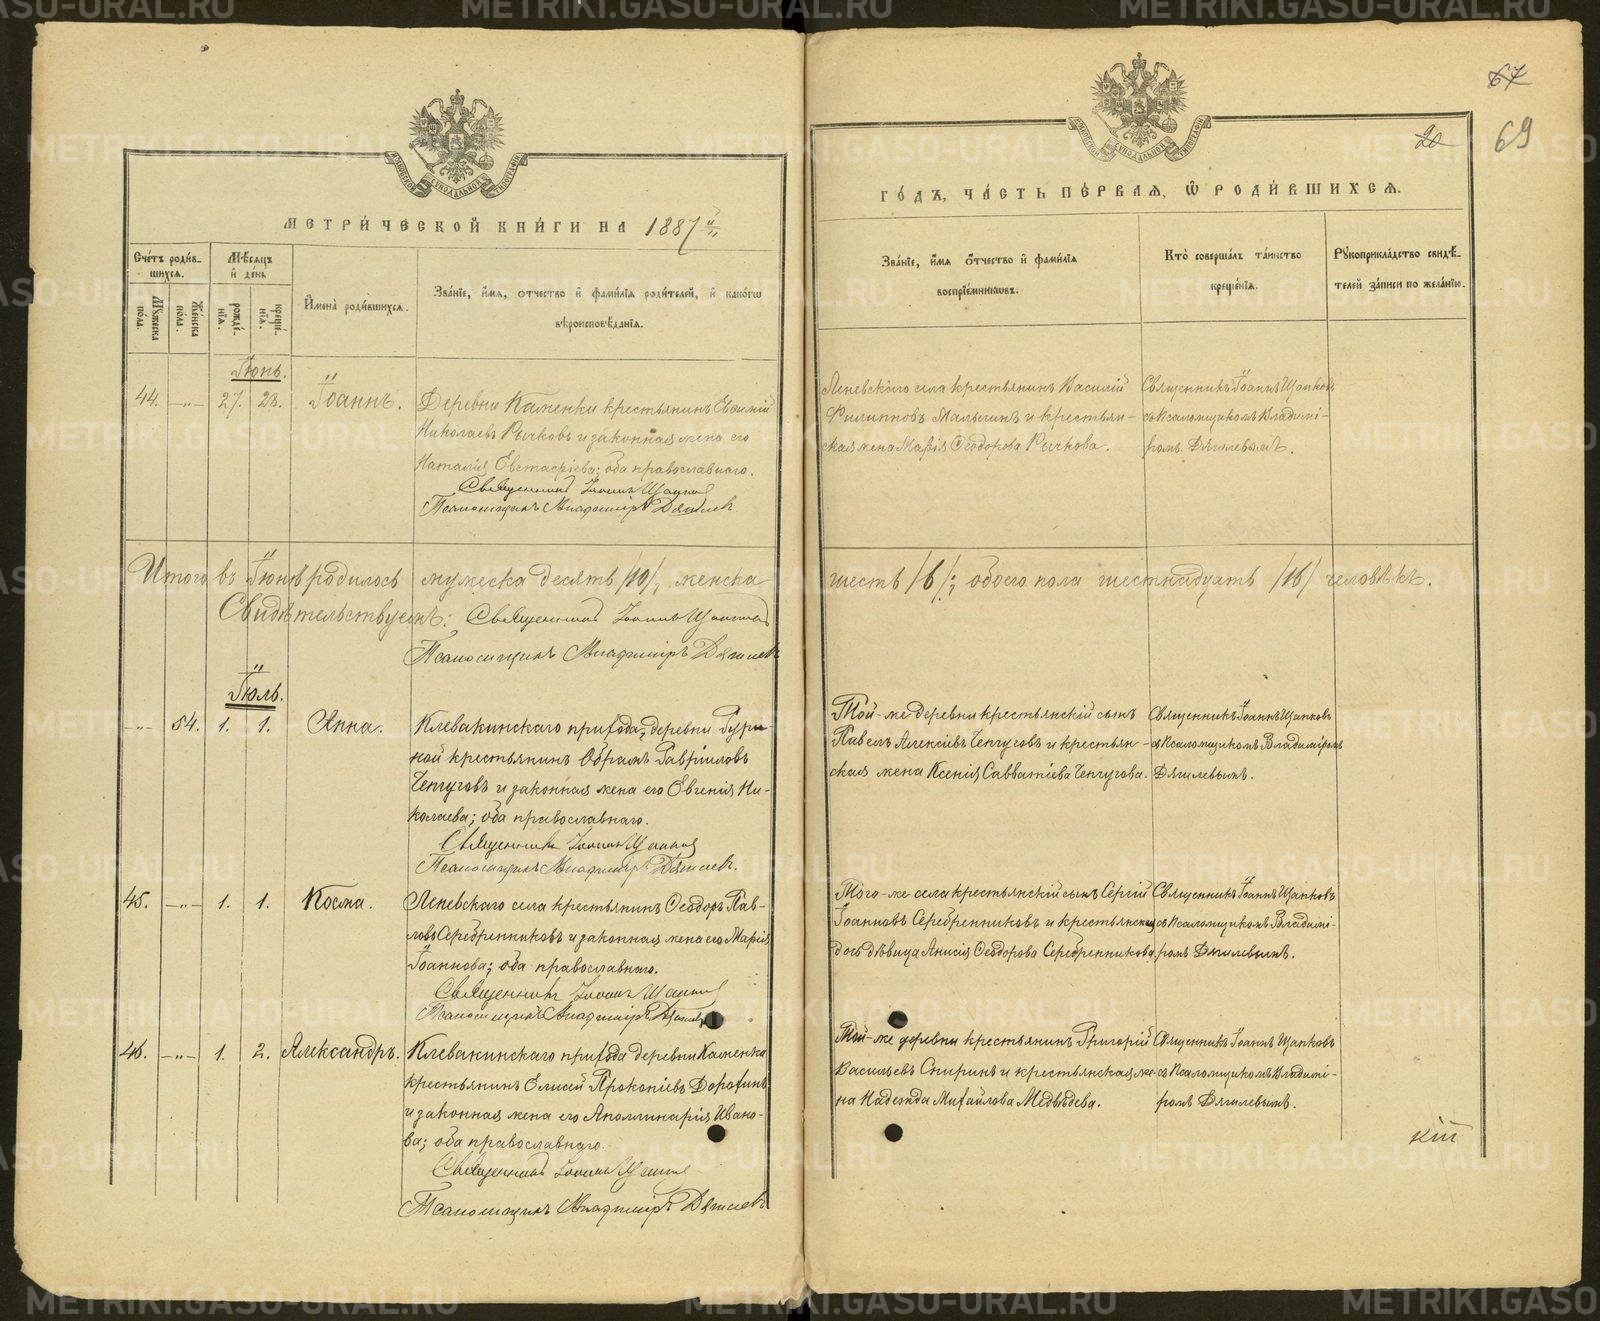 МЕТРИ́ЧЕСКОЙ КНИ́ГИ НА 1887 й
Сче́тъ роди́в-
шихся.
Мѣ́сяцъ
и҆ де́нь
Мꙋ́жеска
по́ла.
Же́нска
по́ла.
рожде́-
нїѧ.
креще́-
нїѧ.
И҆мена̀ роди́вшихсѧ.
Зва́нїе, и҆́мѧ, ѻ҆́тчество и҆ фами́лїѧ роди́телей, и҆ како́гѡ
вѣроисповѣ́данїѧ.
Іюнь.
44. -"- 27. 28. Іоаннъ. Деревни Каменки крестьянинъ Евѳимій
Николаевъ Рычковъ и законная жена его
Наталія Евстафіева; оба православнаго.
Священникъ Іоаннъ Щапковъ
Псаломщикъ Владиміръ Дягилевъ
Итого въ Іюнѣ родилось мужеска десять /10/, женска
Свидѣтельствуемъ: Священникъ Іоаннъ Щапковъ
Псаломщикъ Владиміръ Дягилевъ
Іюль.
-"- 54. 1. 1. Анна. Клевакинскаго прихода, деревни
крестьянинъ Абрамъ Гавріиловъ
Чепуговъ и законная жена его Евгенія Ни-
колаева; оба православнаго.
Священникъ Іоаннъ Щапковъ
Псаломщикъ Владиміръ Дягилевъ.
45. -"- 1. 1. Косма. Леневскаго села крестьянинъ Ѳеодоръ Пав-
ловъ Серебренниковъ и законная жена его Марія
Іоаннова; оба православнаго.
Священникъ Іоаннъ Щапковъ
Псаломщикъ Владиміръ Дягилевъ
46. -"- 1. 2. Александръ. Клевакинскаго прихода деревни Каменки
крестьянинъ Елисей Прокопіевъ Дорохинъ
и законная жена его Аполлинарія Ивано-
ва; оба православнаго.
Священникъ Іоаннъ Щапковъ
Псаломщикъ Владиміръ Дягилевъ
67
20
69
ГО́ДЪ, ЧА́СТЬ ПЕ́РВАѦ, Ѽ РОДИ́ВШИХСѦ.
Зва́нїе, и҆́мѧ ѻ҆́тчество и҆ фами́лїѧ
воспрїе́мникѡвъ.
Кто̀ соверша́лъ та́инство
креще́нїѧ.
Рꙋкоприкла́дство свидѣ́-
телей за́писи по жела́нїю.
Леневскаго села крестьянинъ Василій
Филипповъ Малыгинъ и крестьян-
ская жена Марія Ѳеодорова Рычкова.
Священникъ Іоаннъ Щапковъ
съ Псаломщикомъ Владимі-
ромъ Дягилевымъ.
шесть /6/; обоего пола шестнадцать /16/ человѣкъ.
Той-же деревни крестьянскій сынъ
Павелъ Алексіевъ Чепуговъ и крестьян-
ская жена Ксенія Савватіева Чепугова.
Священникъ Іоаннъ Щапковъ
съ Псаломщикомъ Владиміромъ
Дягилевымъ.
Того-же села крестьянскій сынъ Сергій
Іоанновъ Серебренниковъ и крестьянская
дочь дѣвица Анисія Ѳеодорова Серебренникова.
Священникъ Іоаннъ Щапковъ
съ Псаломщикомъ Владимі-
ромъ Дягилевымъ.
Той-же деревни крестьянинъ Григорій
Васильевъ Спиринъ и крестьянская же-
на Надежда Михайлова Медвѣдева.
Священникъ Іоаннъ Щапковъ
съ Псаломщикомъ Владимі-
ромъ Дягилевымъ.
METRIKI.GASO-URAL.RU